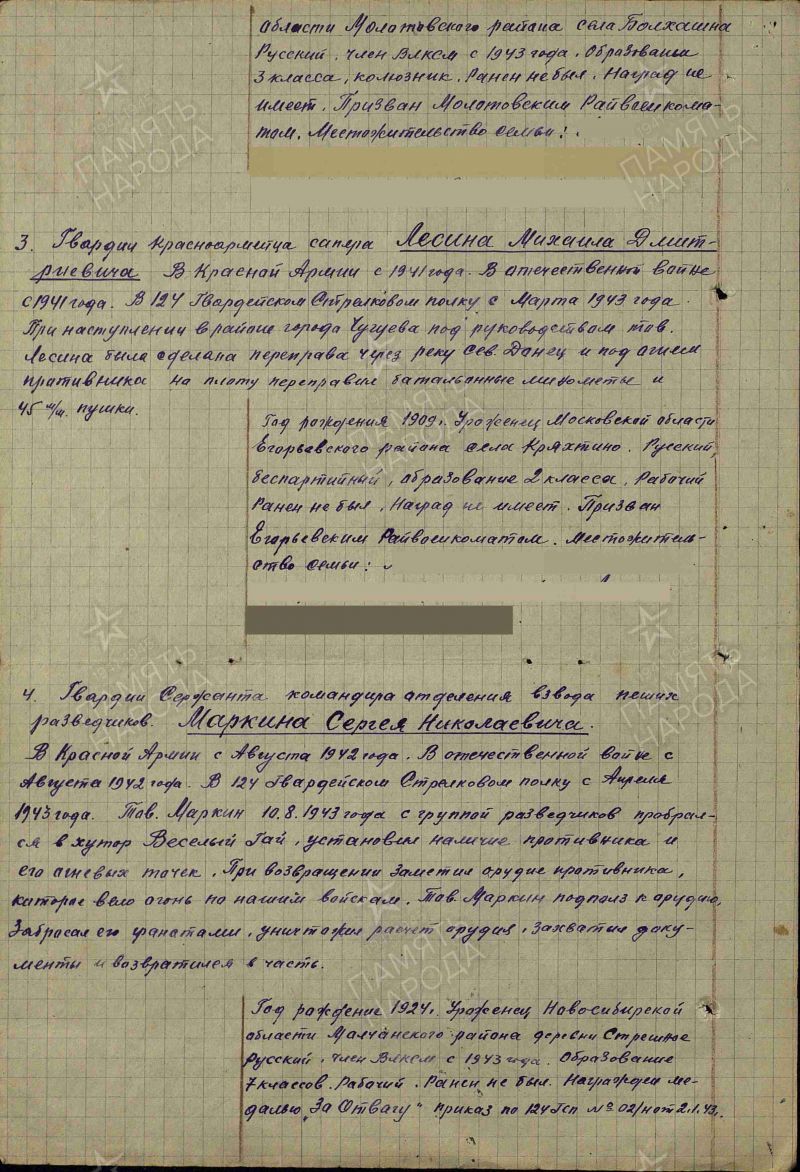 области Молотовского района села Болхашна
Русский, член ВЛКСМ с 1943 года. Образование
3 класса, колхозник. Ранен не был. Наград не
имеет. Призван Молотовским Райвоенкома-
том. Местожительство семьи:
3. Гвардии красноармейца сапера Лесина Михаила Дмит-
риевича В Красной Армии с 1941 года. В отечественной войне
с 1941 года. В 124 Гвардейском Стрелковом полку с Марта 1943 года.
При наступлении в районе города Чугуева под руководством тов.
Лесина была сделана переправа через реку Сев. Данец и под огнем
противника на плоту переправил батальонные минометы и
45 м/м. пушки.
Год рождения 1909 г. Уроженец Московской области
Егорьевского района села Кряхтино. Русский,
беспартийный, образование 2 класса, Рабочий
Ранен не был, Наград не имеет. Призван
Егорьевским Райвоенкоматом. Местожитель-
ство семьи:
4. Гвардии Сержанта командира отделения взвода пеших
разведчиков. Маркина Сергея Николаевича.
В Красной Армии с Августа 1942 года. В отечественной войне с
Августа 1942 года. В 124 Гвардейском Стрелковом полку с Апреля
1943 года. Тов. Маркин 10.8.1943 года с группой разведчиков пробрал-
ся в хутор Веселый Гай, установил наличие противника и
его огневых точек. При возвращении заметил орудие противника,
которое вело огонь по нашим войскам. Тов. Маркин подполз к орудию,
Забросал его гранатами, уничтожил расчет орудия, захватил доку-
менты и возвратился в часть.
Год рождение 1924 г. Уроженец Новосибирской
области Малчанского района деревни Стрешное
Русский, член ВЛКСМ с 1943 года. Образование
7 классов. Рабочий. Ранен не был. Награжден ме-
далью „За Отвагу" приказ по 124 Гсп № 02/н от 2.1.43 г.
ПАМЯТЬ НАРОДА